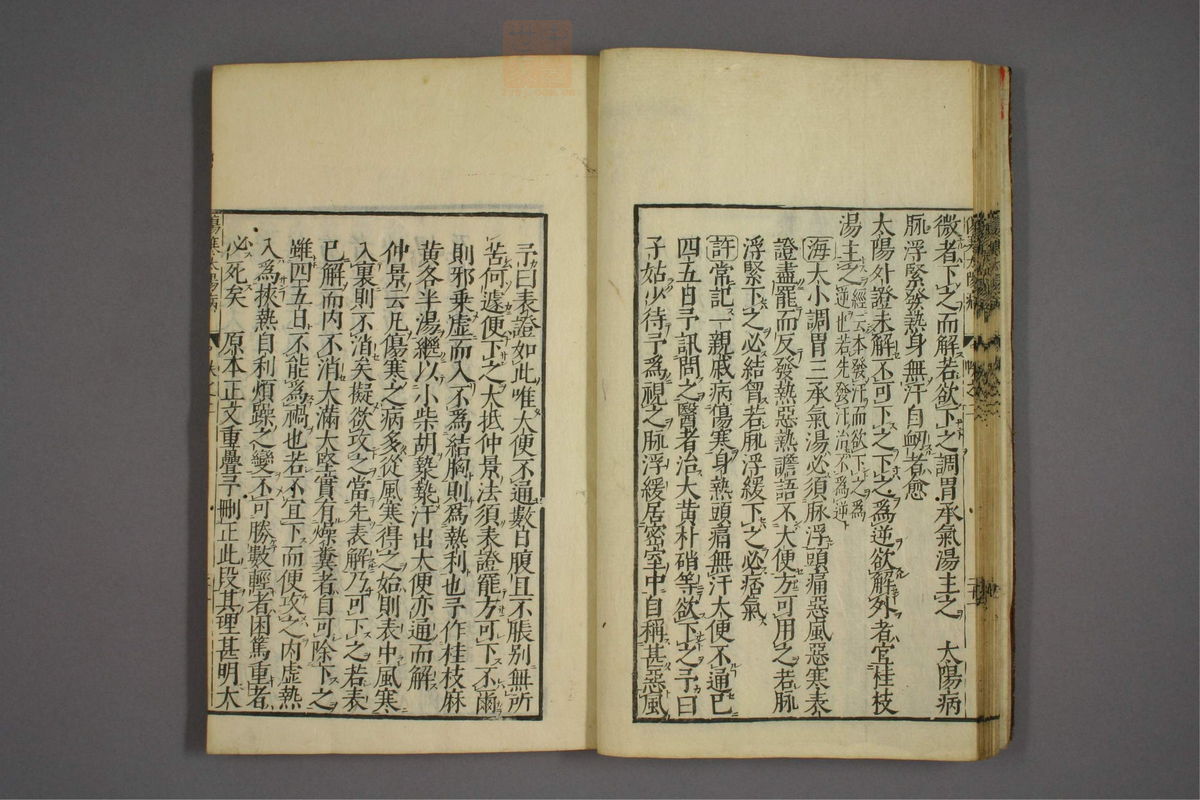 微者下之而解若欲下之調胃承氣湯主之　太陽病
脉浮緊發熱身無汗自衂者愈
太陽外證未解不可下之下之爲逆欲解外者宜桂枝
湯主之經云本發汗而欲下之爲
逆也若先發汗治不爲逆
海太小調胃三承氣湯必須脉浮頭痛惡風惡寒表
證盡罷而反發熱惡熱譫語不大便方可用之若脉
浮緊下之必結胷若脉浮緩下之必痞氣
許常記一親戚病傷寒身熱頭痛無汗大便不通巳
四五日予訊問之醫者治大黄朴硝等欲下之予曰
子姑少待予爲視之脉浮緩居密室中自稱甚惡風
予曰表證如此唯大便不通數日腹且不脹别無所
苦何遽便下之大抵仲景法須表證罷方可下不爾
則邪乘虚而入不爲結胸則爲熱利也予作桂枝麻
黄各半湯繼以小柴胡漐漐汗出大便亦通而解
仲景云凡傷寒之病多從風寒得之始則表中風寒
入裏則不消矣擬欲攻之當先表解乃可下之若表
已解而内不消大滿大堅實有燥糞者自可除下之
雖四五日不能爲禍也若不宜下而便攻之内虚熱
入爲挾熱自利煩躁之變不可勝數輕者困篤重者
必死矣　原本正文重疊予刪正此段其理甚明大
傷寒太陽病